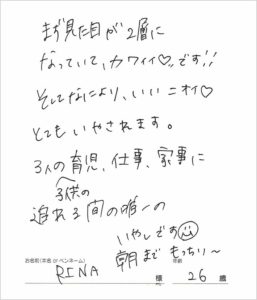 まず見た目が2層に
なっていて、カワイイ♡です!!
そしてなにより、いいニオイ♡
とてもいやされます。
3人の育児、仕事、家事に
子供の
追れる間の唯一の
いやしです☺
朝までもっちり〜
お名前(本名 or ペンネーム) 年齢
RINA 様 26 歳